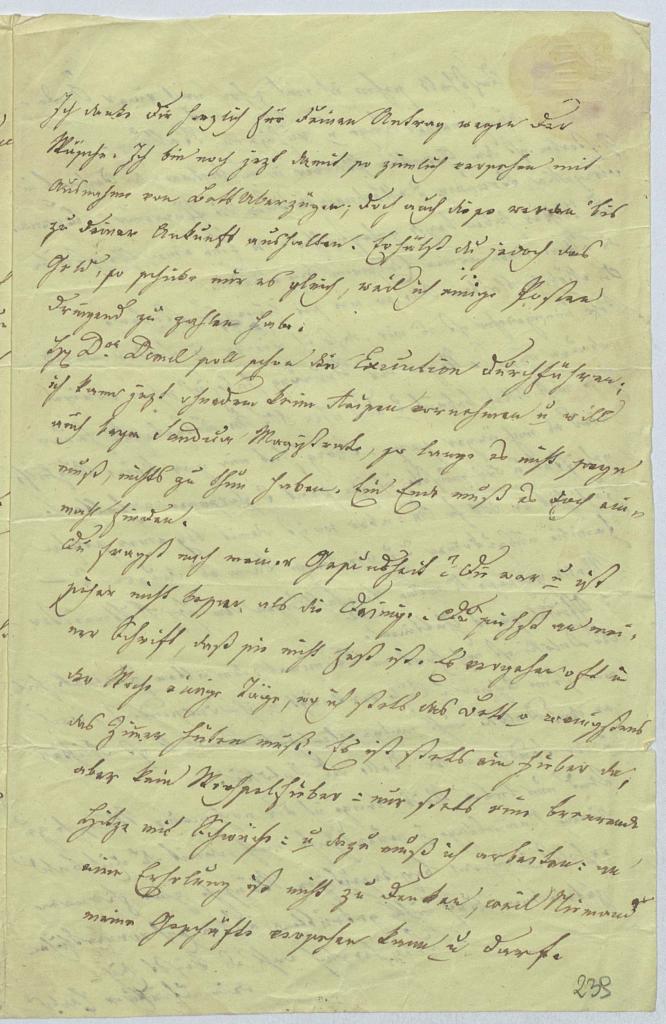 Ich danke Dir herzlich für Deinen Antrag wegen der
Wäsche. Ich bin noch jezt damit so zimlich versehen mit
Ausnahme von Bett Uberzügen; doch auch diese werden bis
zu Deiner Ankunft aushalten. Erhälst du jedoch das
Geld, so schicke mir es gleich, weil ich einige Posten
dringend zu zahlen habe.
H Dor soll schon die Execution durchführen;
ich kann jezt ohnedem keine Reisen vornehmen u will
auch beym Magistrate, so lange es nicht seyn
muß, nichts zu thun haben. Ein Ende muß es doch ein-
mahl finden.
Du fragst nach meiner Gesundheit? Die war u ist
sicher nicht besser, als die Deinige. Du siehst an mei-
ner Schrift, daß sie nicht fest ist. Es vergehen oft in
der Woche einige Täge, wo ich stets das Bett o wenigstens
das Zimer hüten muß. Es ist stets ein Fieber da,
aber kein Wechselfieber = nur stets eine brennende
Hitze mit Schwäche: u dazu muß ich arbeiten: an
eine Erholung ist nicht zu denken, weil Niemand
meine Geschäfte versehen kann u darf.
239